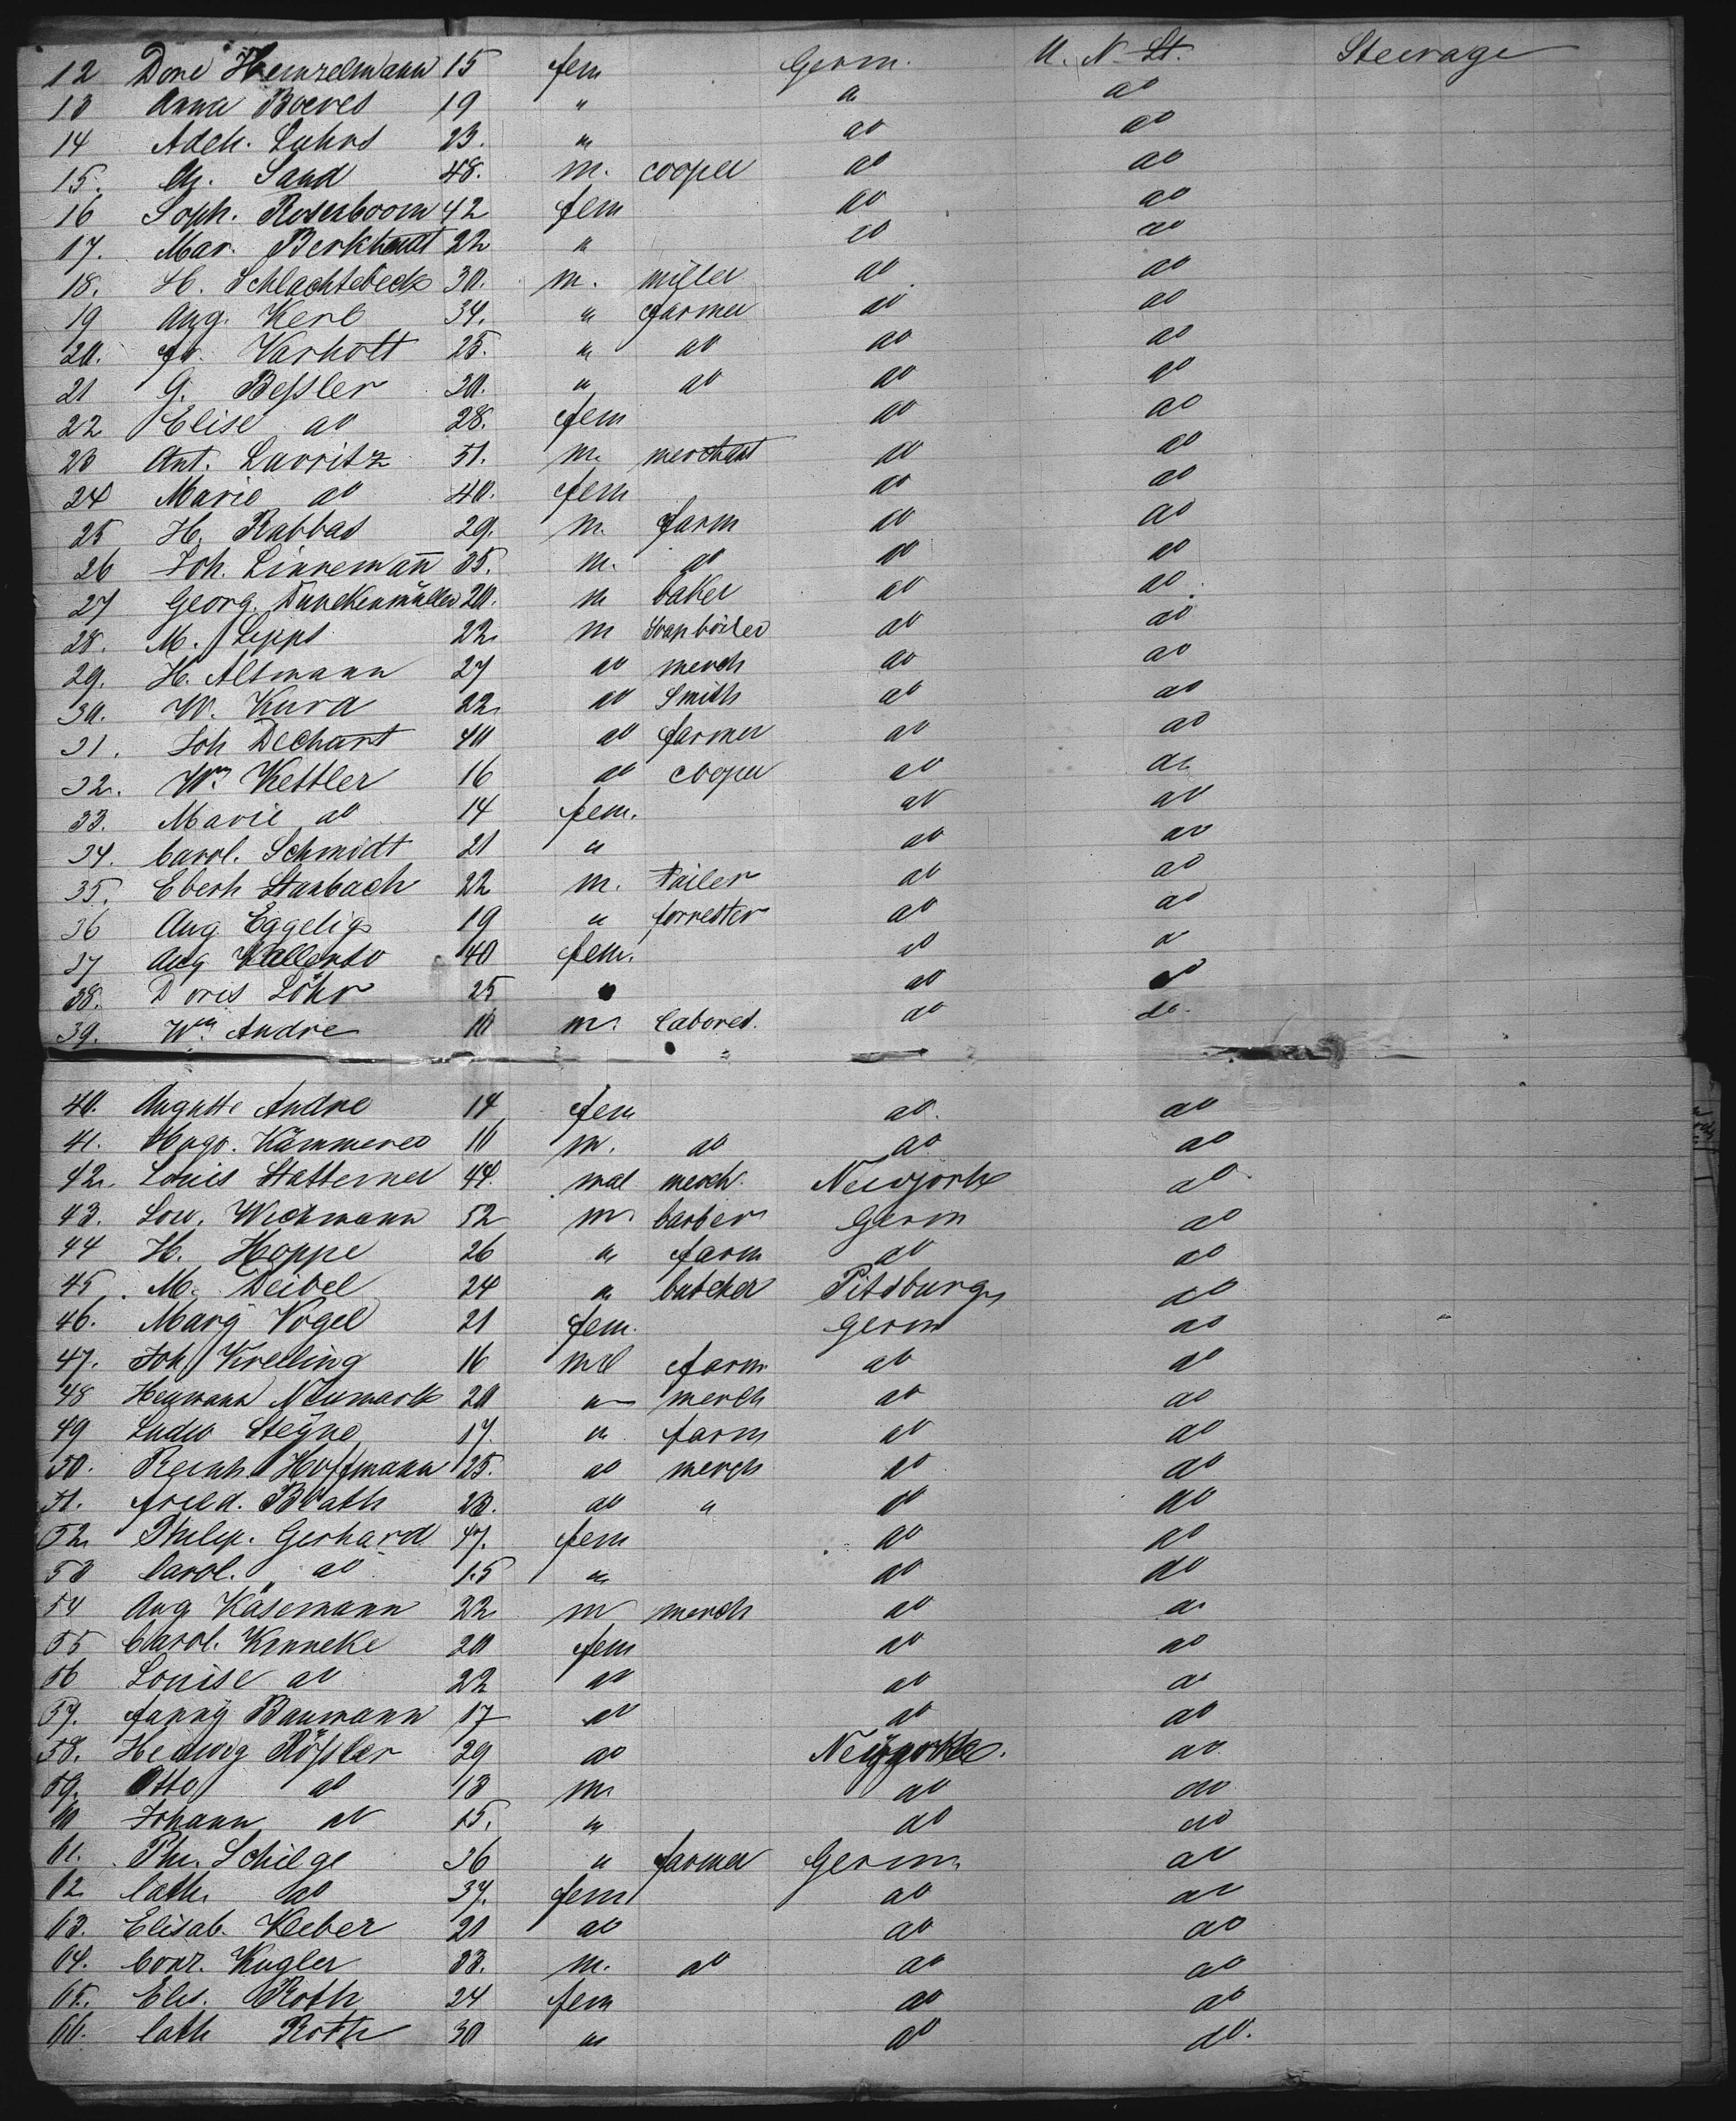 12 Dore Heinzelmann 15 fem Germ. U. N. St. Steerage
13 Anna Boeves 19 " " do
14 Adelh. Luhrs 23. " do do
15. Ch. Sand 48. m. cooper do do
16 Soph. Rosenboom 42 fem do do
17. Mar. Berkhardt 22 " do do
18. H. Schlachtebeck 30. m. miller do do
19 Aug. Kerl 34. " farmer do do
20. Fr. Varholt 25. " do do do
21 G. Beßler 30. " do do do
22 Elise do 28. fem do do
23 Ant. Lavritz 51. m. merchant do do
24 Marie do 40. fem do do
25 H. Rabbas 29. m. farm do do
26 Joh. Linnemañ 35. m. do do do
27 Georg. Dünekenmüller 20. m baker do do
28. M. Lipps 22 m Soapboiler do do
29. H. Altmann 27 do merch do do
30. W. Kura 22 do Smith do do
31. Joh Dechant 40 do farmer do do
32. Wm Kettler 16 do cooper do do
33. Marie do 14 fem. do do
34. Carol. Schmidt 21 " do do
35. Eberh Starbach 22 m. tailer do do
36 Aug Eggelig 19 " forrester do do
37 Aug 40 fem. do do
38. Doris Löhr 25 " do do
39. Wm Andre m. labored. do do
40. Auguste Andre 14 fem do do
41. Hugo. Kämmerer m. do do do
42. Louis Statterner 44. mal merch. Newyork do
43. Low. Wichmann 52 m. barber Germ do
44 H. Hoppe 26 " farm do do
45. M. Deibel 24 " butcher Pitsburg do
46. Marÿ Vogel 21 fem. Germ do
47. Joh Krelling 16 ml farm do do
48 Hermann Neumark 20 " merch do do
49 Ludw Stegne 17. " farm do do
50. Reinh. Hoffmann 25. do merch do do
51. Fried. Brath 23. do " do do
52. Philip. Gerhard 47. fem do do
53 Carol. do 15 " do do
54 Aug Käsemann 22 m merch do do
55 Carol. Kinneke 20 fem do do
56 Louise do 22 do do do
57. Fannÿ Baumann 17 do do do
58. Hedwig Rößler 29 do Newyork. do
59. Otto do 13 m. do do
60 Johann do 15. " do do
61. Ph. Schilge 36 " farmer Germ do
62 Cath. do 37. fem do do
63. Elisab. Weber 21 do do do
64. Conr. Kugler 33. m. do do do
65. Elis. Roth 24 fem do do
66. Cath Roth 30 " do do.